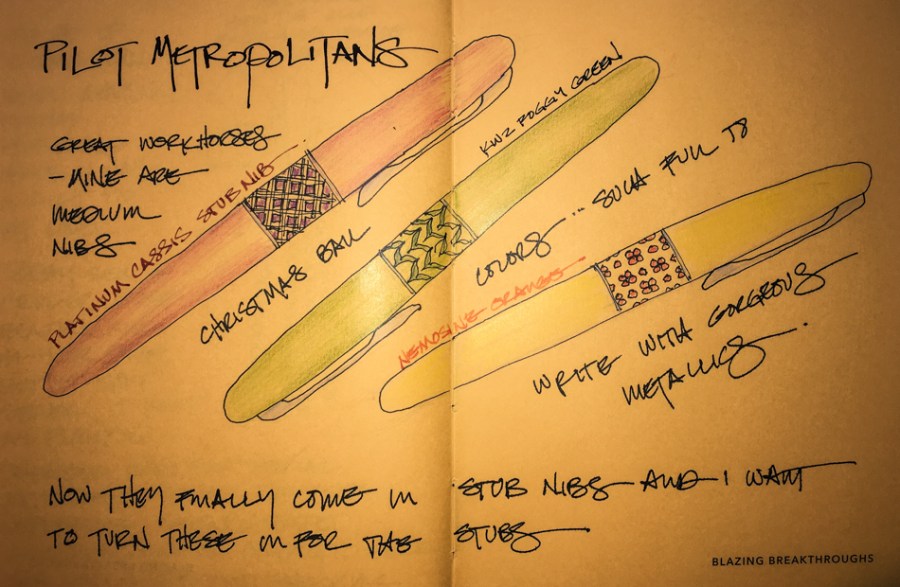 PILOT METROPOLITANS
GREAT WORKHORSES
- MINE ARE
MEDIUM
NIBS
PLATINUM CASSIS STUB NIB
CHRISTMAS BALL
COLORS... SUCH FUN TO
KWZ FOGGY GREEN
NEMOSINE ORANGE
WRITE WITH GORGEOUS
METALLICS.
NOW THEY FINALLY COME IN STUB NIBS AND I WANT
TO TURN THESE IN FOR THE STUBS
BLAZING BREAKTHROUGHS